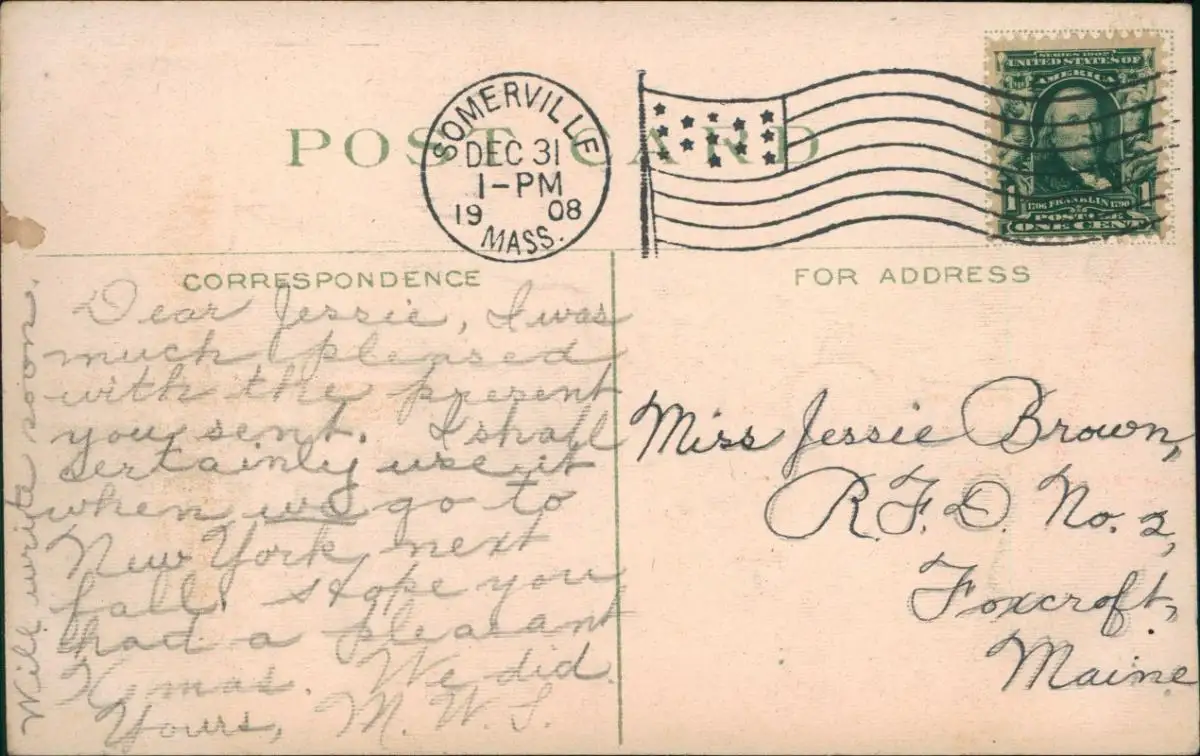 POST CARD
SOMERVILLE
DEC 31
1-PM
19 08
MASS.
SERIES 1902
UNITED STATES OF
AMERICA
1 1
1706 FRANKLIN 1790
POSTAGE
ONE CENT
CORRESPONDENCE
FOR ADDRESS
Dear Jessie, I was
much pleased
with the present
you sent. I shall
certainly use it
when we go to
New York next
fall. Hope you
had a pleasant
Xmas. We did.
Yours, M. W. S.
Will write soon.
Miss Jessie Brown,
R.F.D. No. 2,
Foxcroft,
Maine